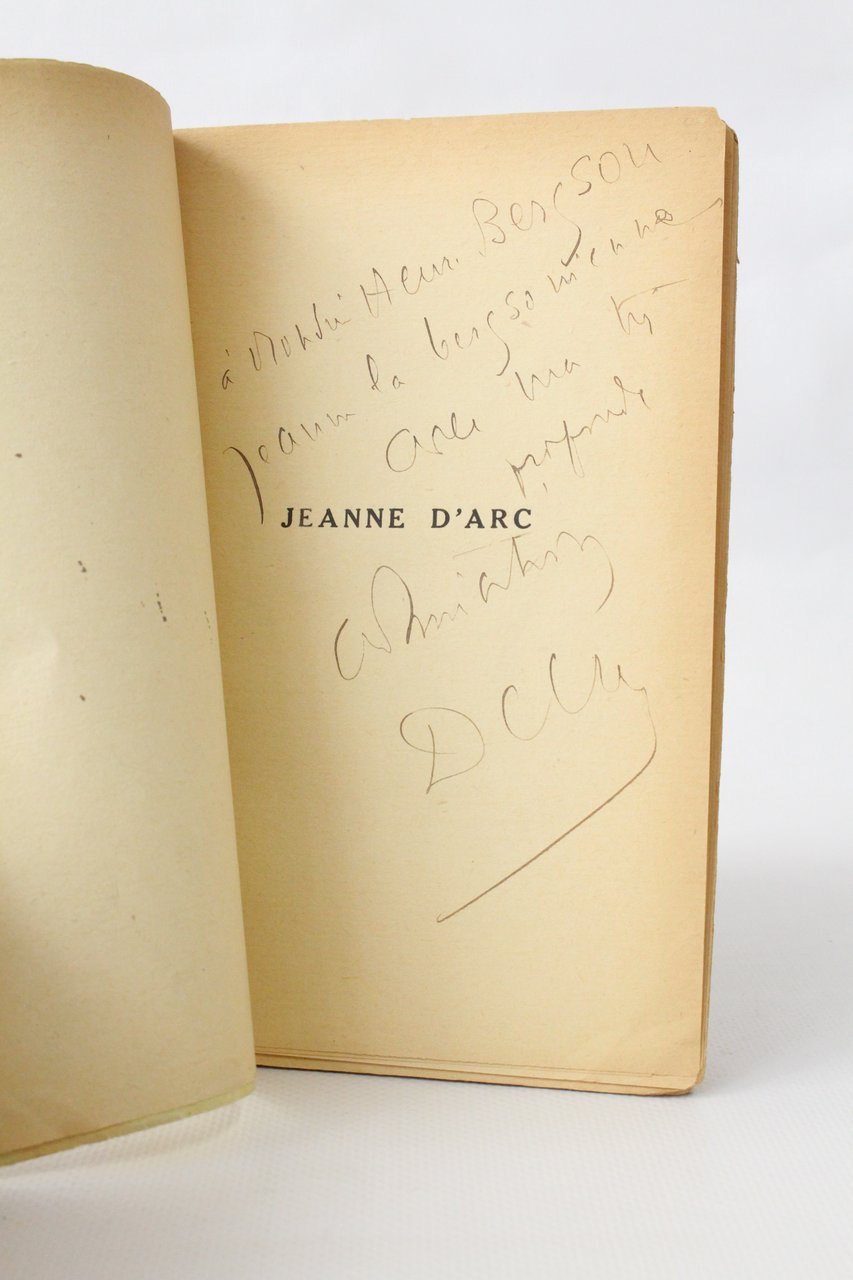 à Monsieur Henri Bergson
Jeanne la bergsonienne
avec ma très
profonde
JEANNE D'ARC
admiration
Delteil